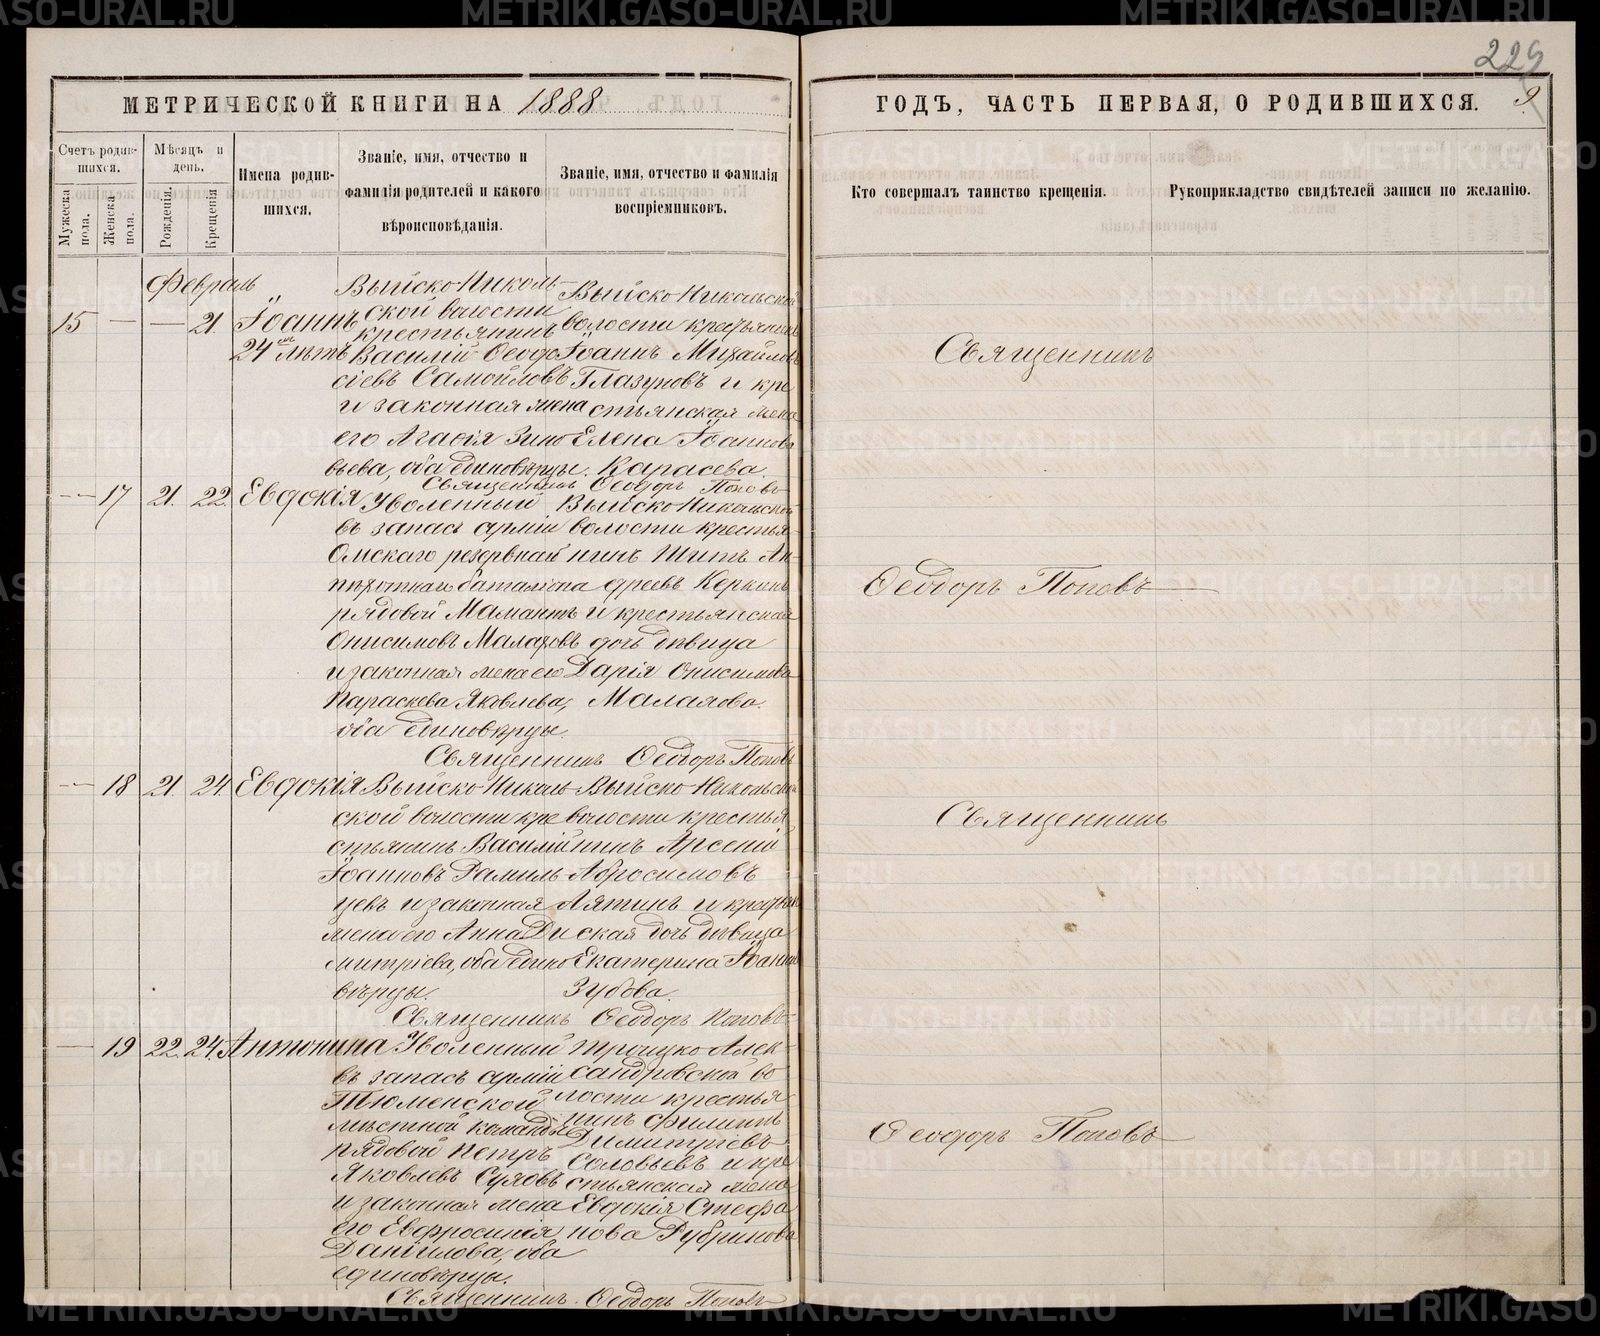 229
9
МЕТРИЧЕСКОЙ КНИГИ НА 1888
ГОДЪ, ЧАСТЬ ПЕРВАЯ, О РОДИВШИХСЯ.
Счетъ родив-
шихся.
Мужеска
пола.
Женска
пола.
Мѣсяцъ и
день.
Рожденія.
Крещенія
Имена родив-
шихся.
Званіе, имя, отчество и
фамилія родителей и какого
вѣроисповѣданія.
Званіе, имя, отчество и фамилія
воспріемниковъ.
Кто совершалъ таинство крещенія.
Рукоприкладство свидѣтелей записи по желанію.
Февраль
15 — — 21. Іоаннъ
24 лѣтъ
Выйско-Николь-
ской волости
крестьянинъ
Василій Ѳеодо
сіевъ Самойловъ
и законная жена
его Агаѳія Зино
вьева, оба единовѣрцы.
Выйско-Никольской
волости крестьянинъ
Іоаннъ Михайловъ
Глазуновъ и кре
стьянская жена
Елена Іоаннова
Карасева
Священникъ Ѳеодоръ Поповъ
Священникъ
17 21. 22. Евдокія
Уволенный
въ запасъ арміи
Омскаго резервнаго
пѣхотнаго баталіона
рядовой Мамантъ
Онисимовъ Малаховъ
и законная жена его
Параскева Яковлева,
оба единовѣрцы.
Выйско-Никольской
волости крестья-
нинъ Титъ Ан-
дреевъ Керкинъ
и крестьянская
дочь дѣвица
Дарія Онисимова
Малахова.
Священникъ Ѳеодоръ Поповъ
Ѳеодоръ Поповъ
18 21. 24. Евдокія
Выйско-Николь-
ской волости кре
стьянинъ Василій
Іоанновъ Даниль
цевъ и законная
жена его Анна Ди
митріева, оба едино
вѣрцы.
Выйско-Никольской
волости крестья
нинъ Арсеній
Абросимовъ
Лятинъ и крестьян
ская дочь дѣвица
Екатерина Іоаннова
Зубова.
Священникъ Ѳеодоръ Поповъ
Священникъ
19 22. 24. Антонина
Уволенный
въ запасъ арміи
Тюменской
мѣстной команды
рядовой Петръ
Яковлевъ Суховъ
и законная жена
его Евфросинія
Даніилова, оба
единовѣрцы.
Троицко-Алек-
сандровской во
лости крестья
нинъ Филиппъ
Димитріевъ
Соловьевъ и кре
стьянская жена
Евдокія Стефа
нова Рубцова
Священникъ Ѳеодоръ Поповъ
Ѳеодоръ Поповъ
METRIKI.GASO-URAL.RU